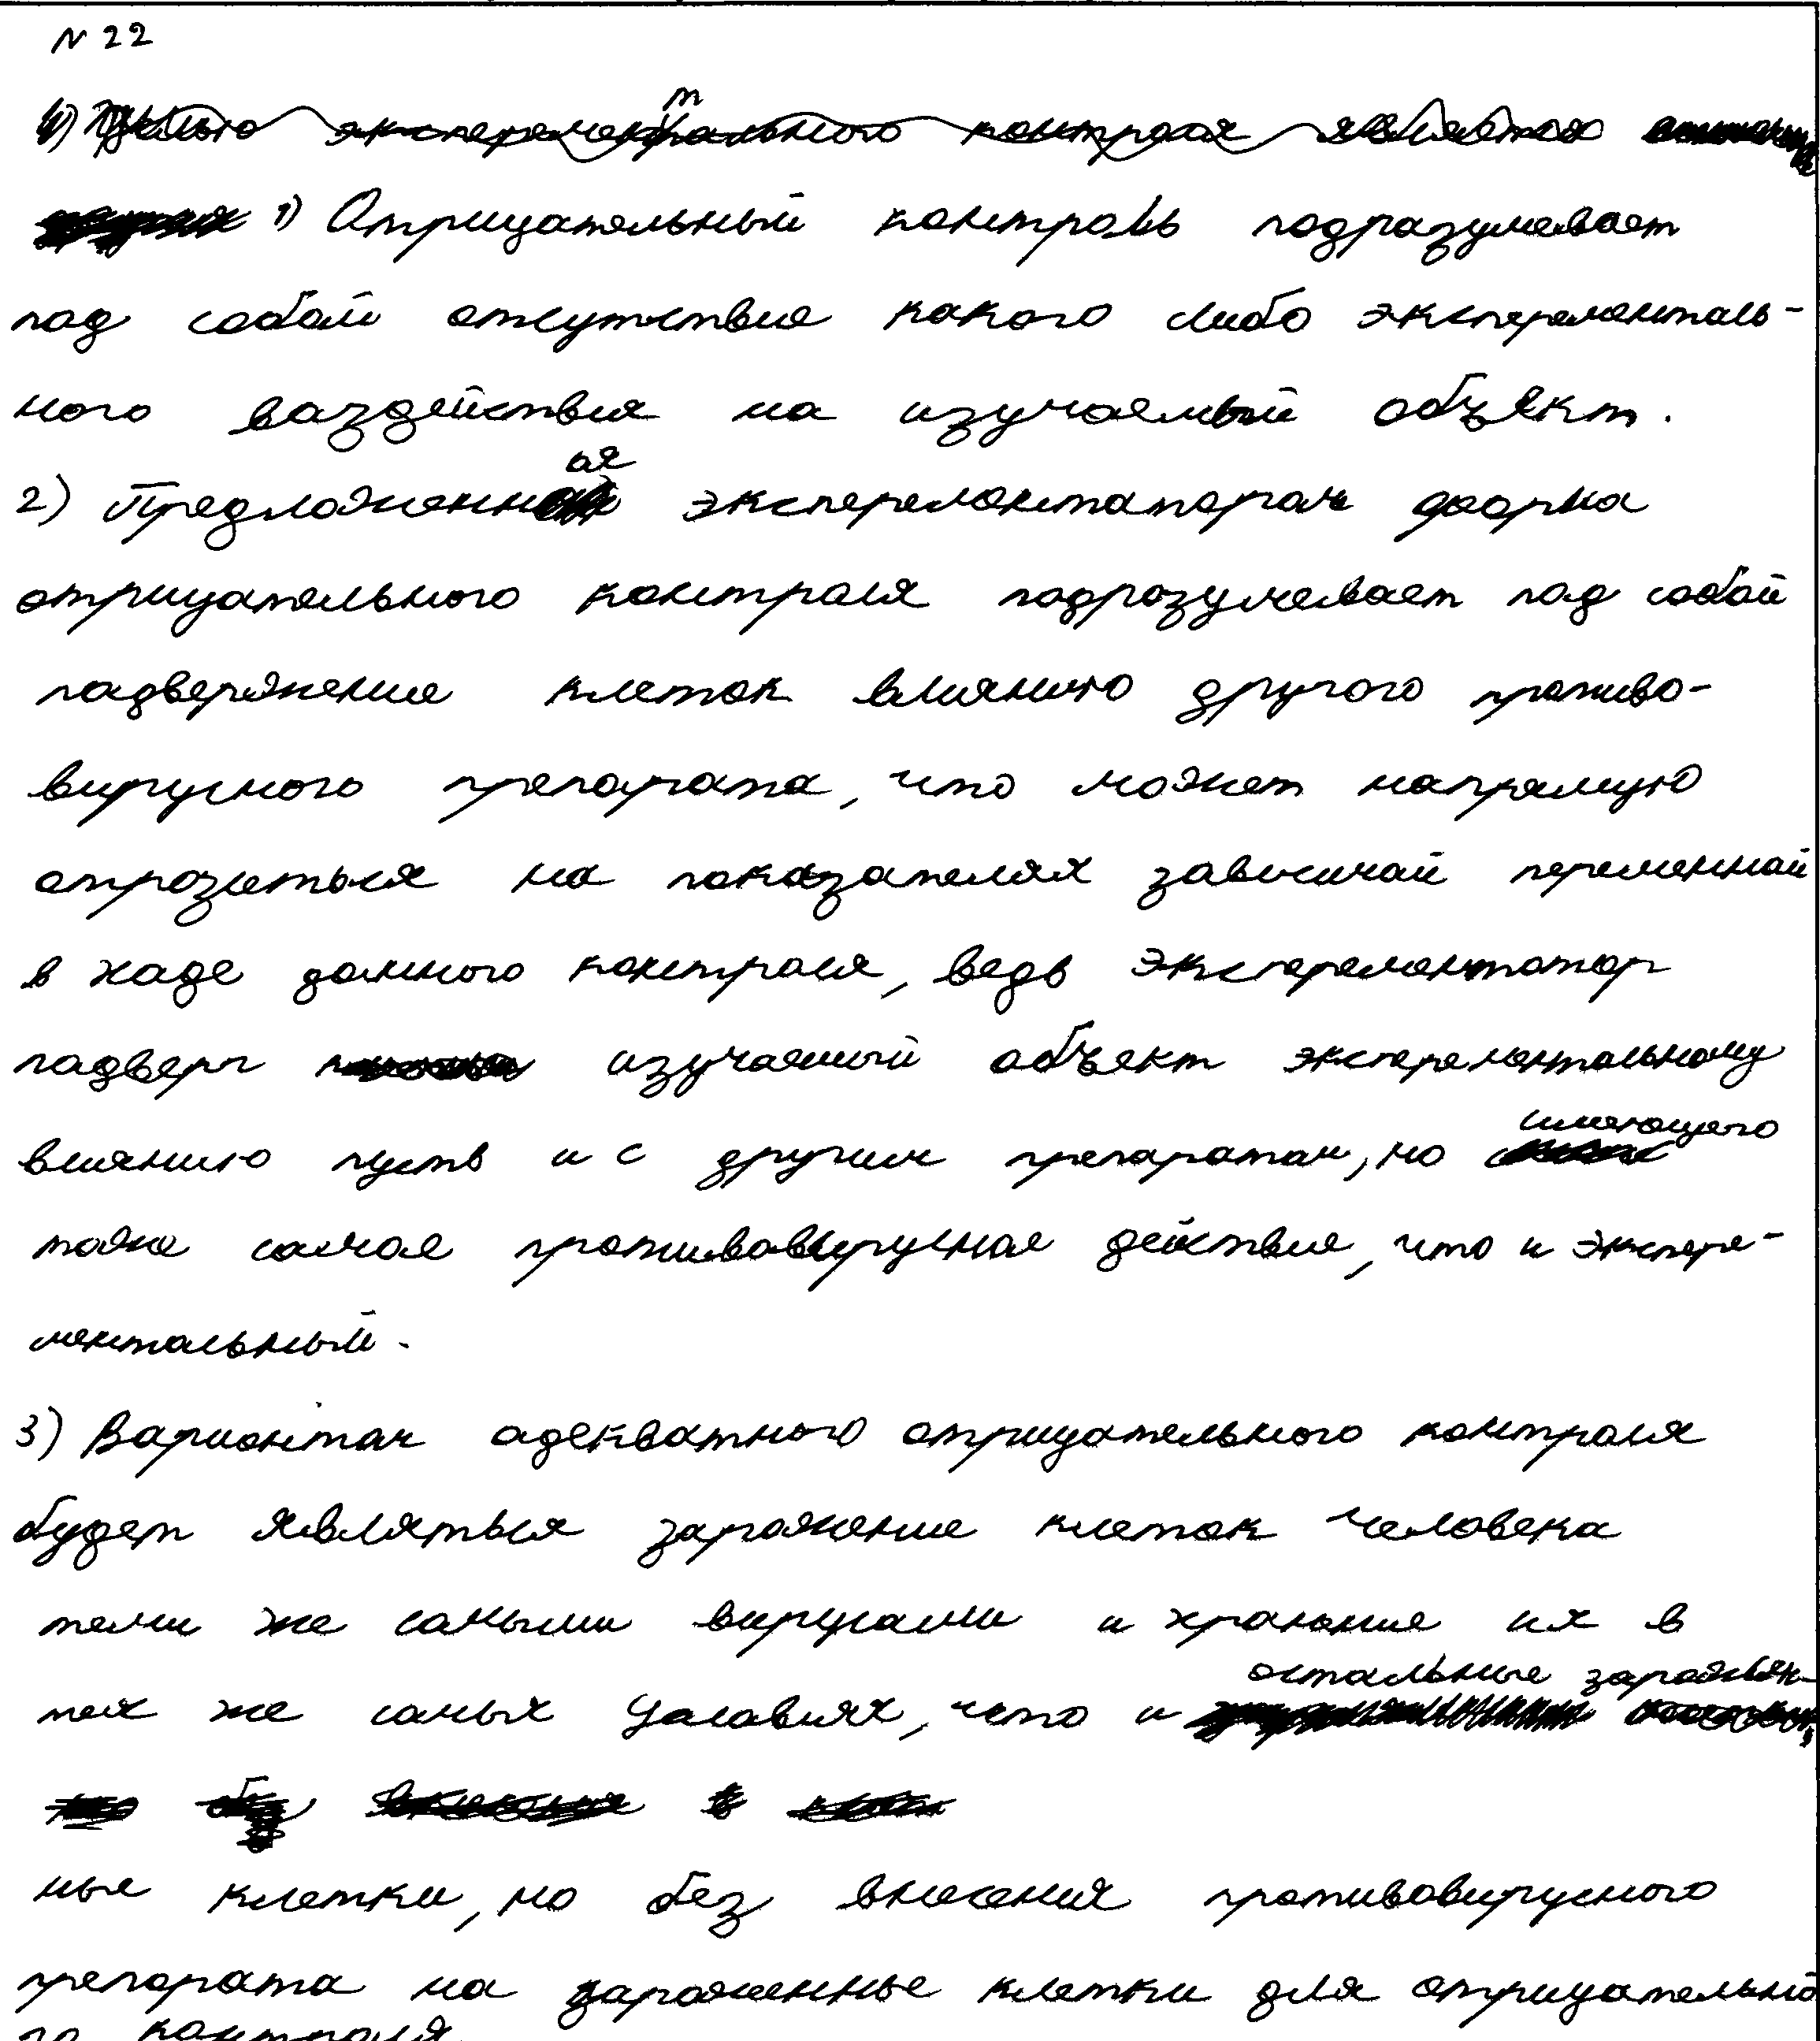 N 22
1) Целью эксперементрального контроля является
1) Отрицательный контроль подразумевает
под собой отсутствие какого либо эксперементаль-
ного воздействия на изучаемый объект.
2) Предложенная эксперементатором форма
отрицательного контроля подрозумевает под собой
подвержение клеток влиянию другого противо-
вирусного препарата, что может напрямую
отрозиться на показателях зависимой переменной
в ходе данного контроля, ведь эксперементатор
подверг изучаемый объект эксперементальному
влиянию пусть и с другим препаратом, но имеющего
тоже самое противовирусное действие, что и экспере-
ментальный.
3) Вариантом адекватного отрицательного контроля
будет являться заражение клеток человека
теми же самыми вирусами и хранение их в
тех же самых условиях, что и остальные заражён-
ные клетки, но без внесения противовирусного
препарата на зараженные клетки для отрицательно
го контроля.